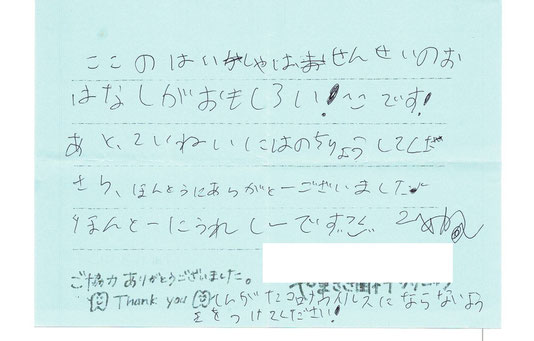 ここのはいしゃはせんせいのお
はなしがおもしろい!です!
あと、ていねいにはのちりょうしてくだ
さり、ほんとうにありがとーございました
ほんとーにうれしーです
ご協力ありがとうございました。
Thank you
しんがたコロナウイルスにならないよう
きをつけてください!